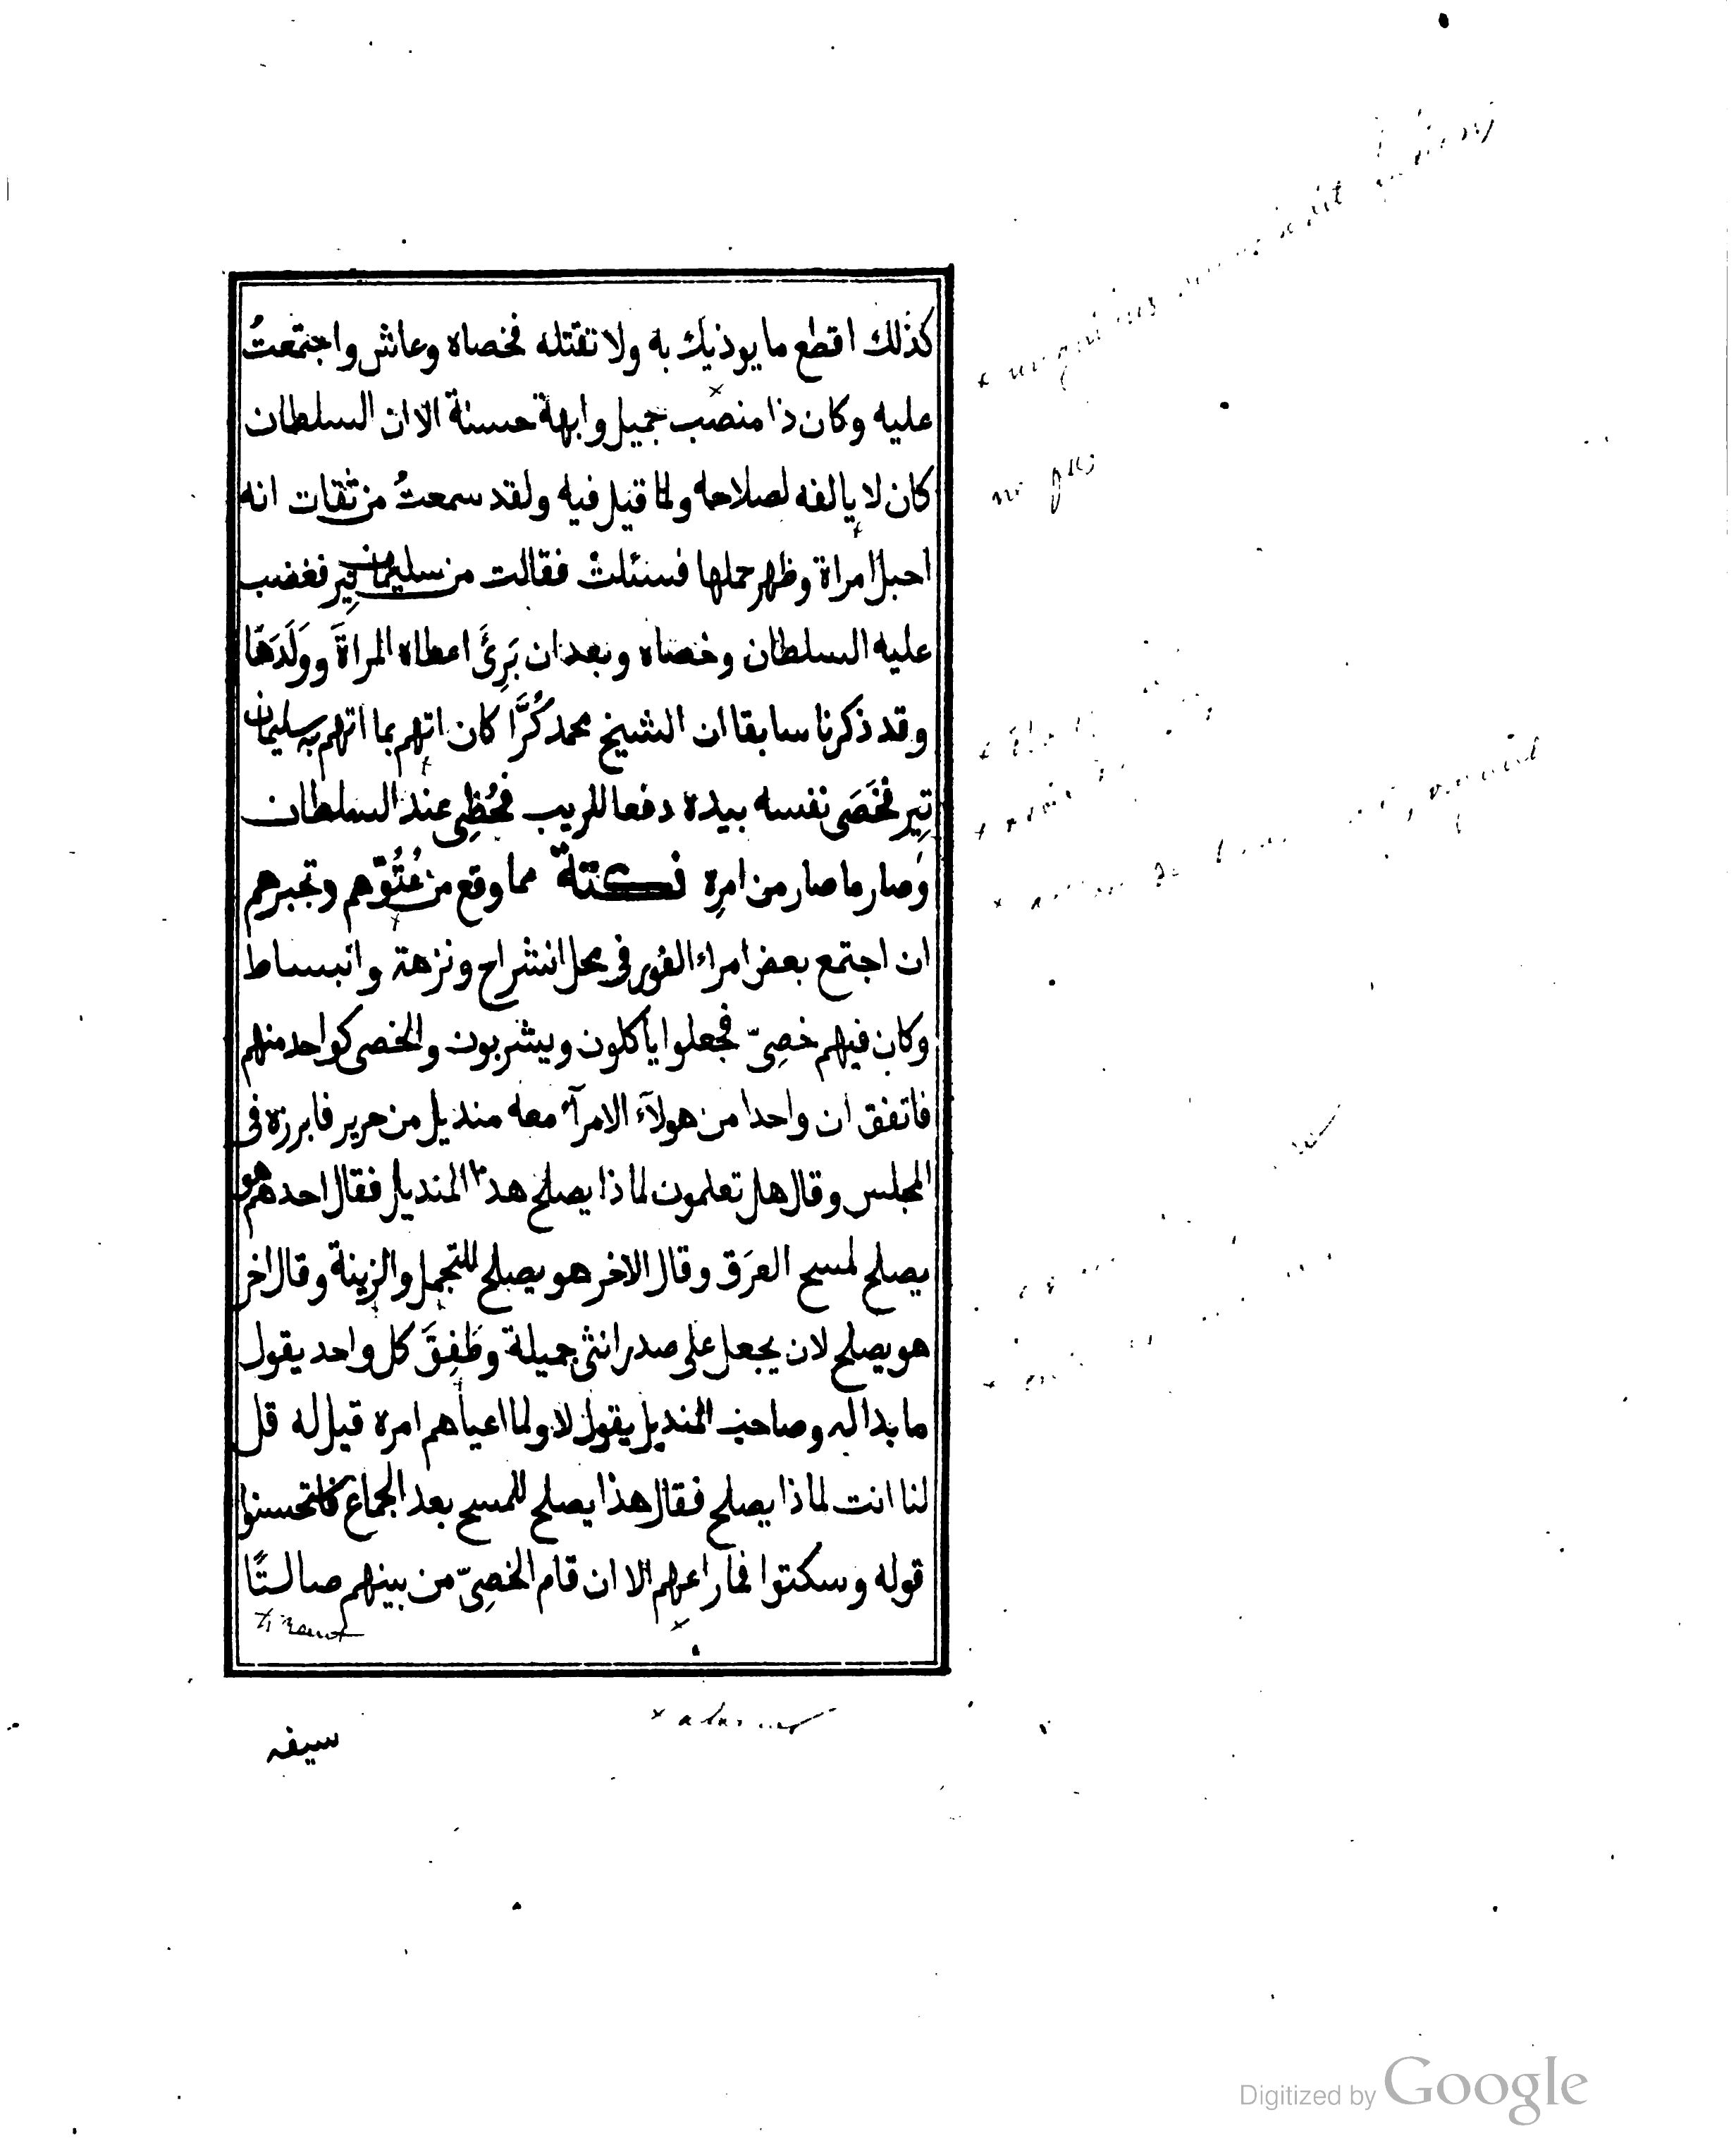 كذلك اقطع ما يوذيك به ولا تقتله فخصاه وعاش واجتمعتُ
عليه وكان ذا منصب جميل وابهة حسنة الّا ان السلطان
كان لا يالفه لصلاحه ولما قيل فيه ولقد سمعتُ من ثقات انه
احبل امراة وظهر حملها فسئلت فقالت من سليمان تِير فغضب
عليه السلطان وخصاه وبعد ان بَرِئَ اعطاه المراةَ ووَلَدَهَا
وقد ذكرنا سابقا ان الشيخ محمد كُرَّا كان اتهم بما اتهم به سليمان
تِير فخَصَى نفسه بيده دفعا للريب فحُظِى عند السلطان
وصار ما صار من امرِه نكتة مما وقع من عُتُوّهم وتجبرهم
ان اجتمع بعض امراء الفور فى محل انشراح ونزهة وانبساط
وكان فيهم خصِىّ فجعلوا ياكلون ويشربون والخصى كواحد منهم
فاتفق ان واحدا من هولآء الامرآء معه منديل من حرير فابرزه فى
المجلس وقال هل تعلمون لماذا يصلح هذا المنديل فقال احدهم هو
يصلح لمسح العرَق وقال الاخر هو يصلح للتجمل والزينة وقال اخر
هو يصلح لان يجعل على صدر انثى جميلة وطَفِقَ كل واحد يقول
ما بدا له وصاحب المنديل يقول لا ولما اعياهم امره قيل له قل
لنا انت لماذا يصلح فقال هذا يصلح للمسح بعد الجماع فاستحسنوا
قوله وسكتوا فما راعهم الا ان قام الخصِىّ من بينهم صالتًا
سيفه
Digitized by Google